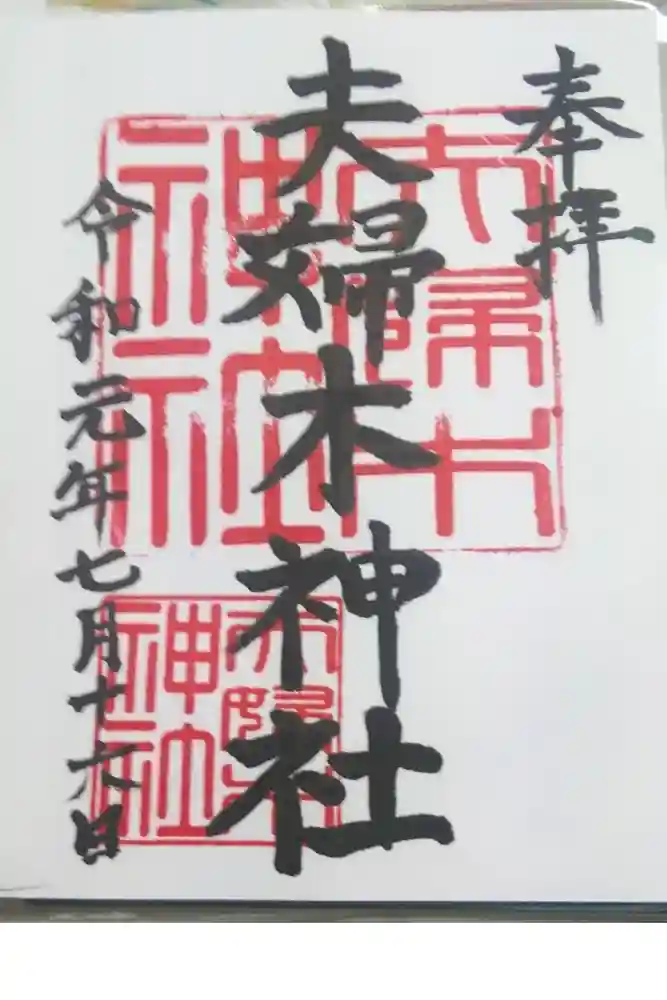 奉拝
夫婦木神社
令和元年七月十六日
夫婦木神社
夫婦木神社